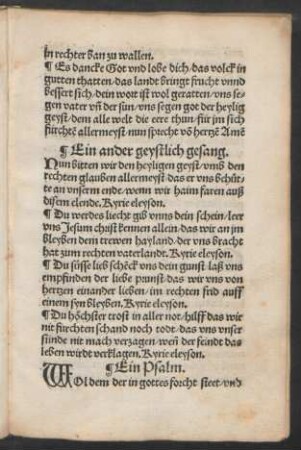 in rechter ban zu wallen.
¶ Es dancke Got vnd lobe dich/das volck in
gutten thatten/das landt bringt frucht vnnd
bessert sich/dein wort ist wol geratten/vns se-
gen vater vñ der sun/vns segen got der heylig
geyst/dem alle welt die eere thun/für jm sich
fürchtē allermeyst/nun sprecht vō hertzē Amē
¶ Ein ander geystlich gesang.
Nun bitten wir den heyligen geyst/vmb den
rechten glauben allermeyst/das er vns behüt-
te an vnserm ende/wenn wir haim faren auß
disem elende. Kyrie eleyson.
¶ Du werdes liecht gib vnns dein schein/leer
vns Jesum christ kennen allein/das wir an jm
bleyben dem trewen hayland/der vns bracht
hat zum rechten vaterlandt. Kyrie eleyson.
¶ Du süsse lieb schēck vns dein gunst/laß vns
empfinden der liebe prunst/das wir vns von
hertzen einanher lieben/im rechten frid auff
einem syn bleyben. Kyrie eleyson.
¶ Du höchster trost in aller not/hilff das wir
nit fürchten schand noch tode/das vns vnser
sünde nit mach verzagen/weñ der feindt das
leben wirdt verklagen. Kyrie eleyson.
¶ Ein Psalm.
WOl dem der in gottes forcht steet/vnd